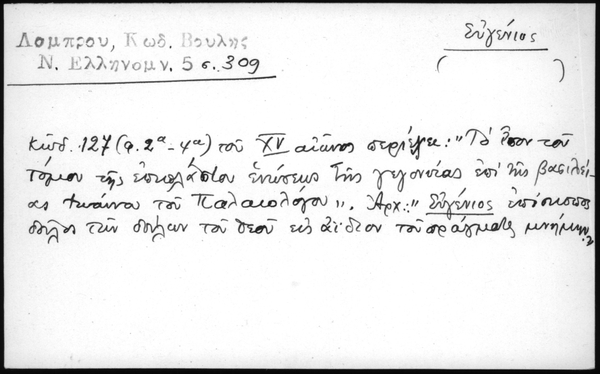 Λαμπρου, Κωδ. Βουλης
Ν. Ελληνομν. 5 σ. 309
Εὐγένιος
( )
Κώδ. 127 (φ. 2α - 4α) τοῦ XV αἰῶνος περιέχει: "Τὸ ἴσον τοῦ
τόμου τῆς ἐπιπλάστου ἑνώσεως τῆς γεγονυίας ἐπὶ τῆς βασιλεί-
ας Ἰωάννου τοῦ Παλαιολόγου". Ἀρχ.: "Εὐγένιος ἐπίσκοπος
δοῦλος τῶν δούλων τοῦ Θεοῦ εἰς ἀΐδιον τοῦ πράγματος μνήμην."